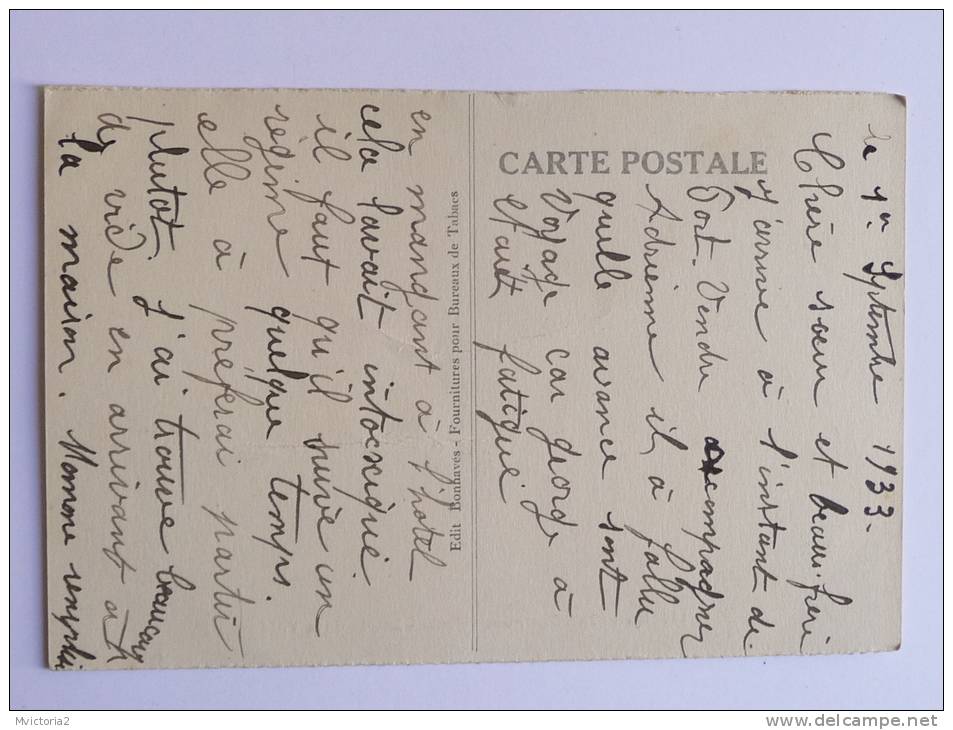 le 1er Septembre 1933.
Chère soeur et beau-frère
j'arrive à l'instant de
Port. Vendu accompagner
Adrienne il à fallu
quelle avance sont
voyage car george à
etait fatigué
en mangeant à l'hotel
cela lavait intocxiqué.
il faut qu'il suive un
régime quelque temps.
elle à préférai partir
plutot. j'ai trouve beaucoup
de vide en arrivant à
la maison. Monone
CARTE POSTALE
Edit Bonhavés - Fournitures pour Bureaux de Tabacs
Mvictoria2
delcampe.net